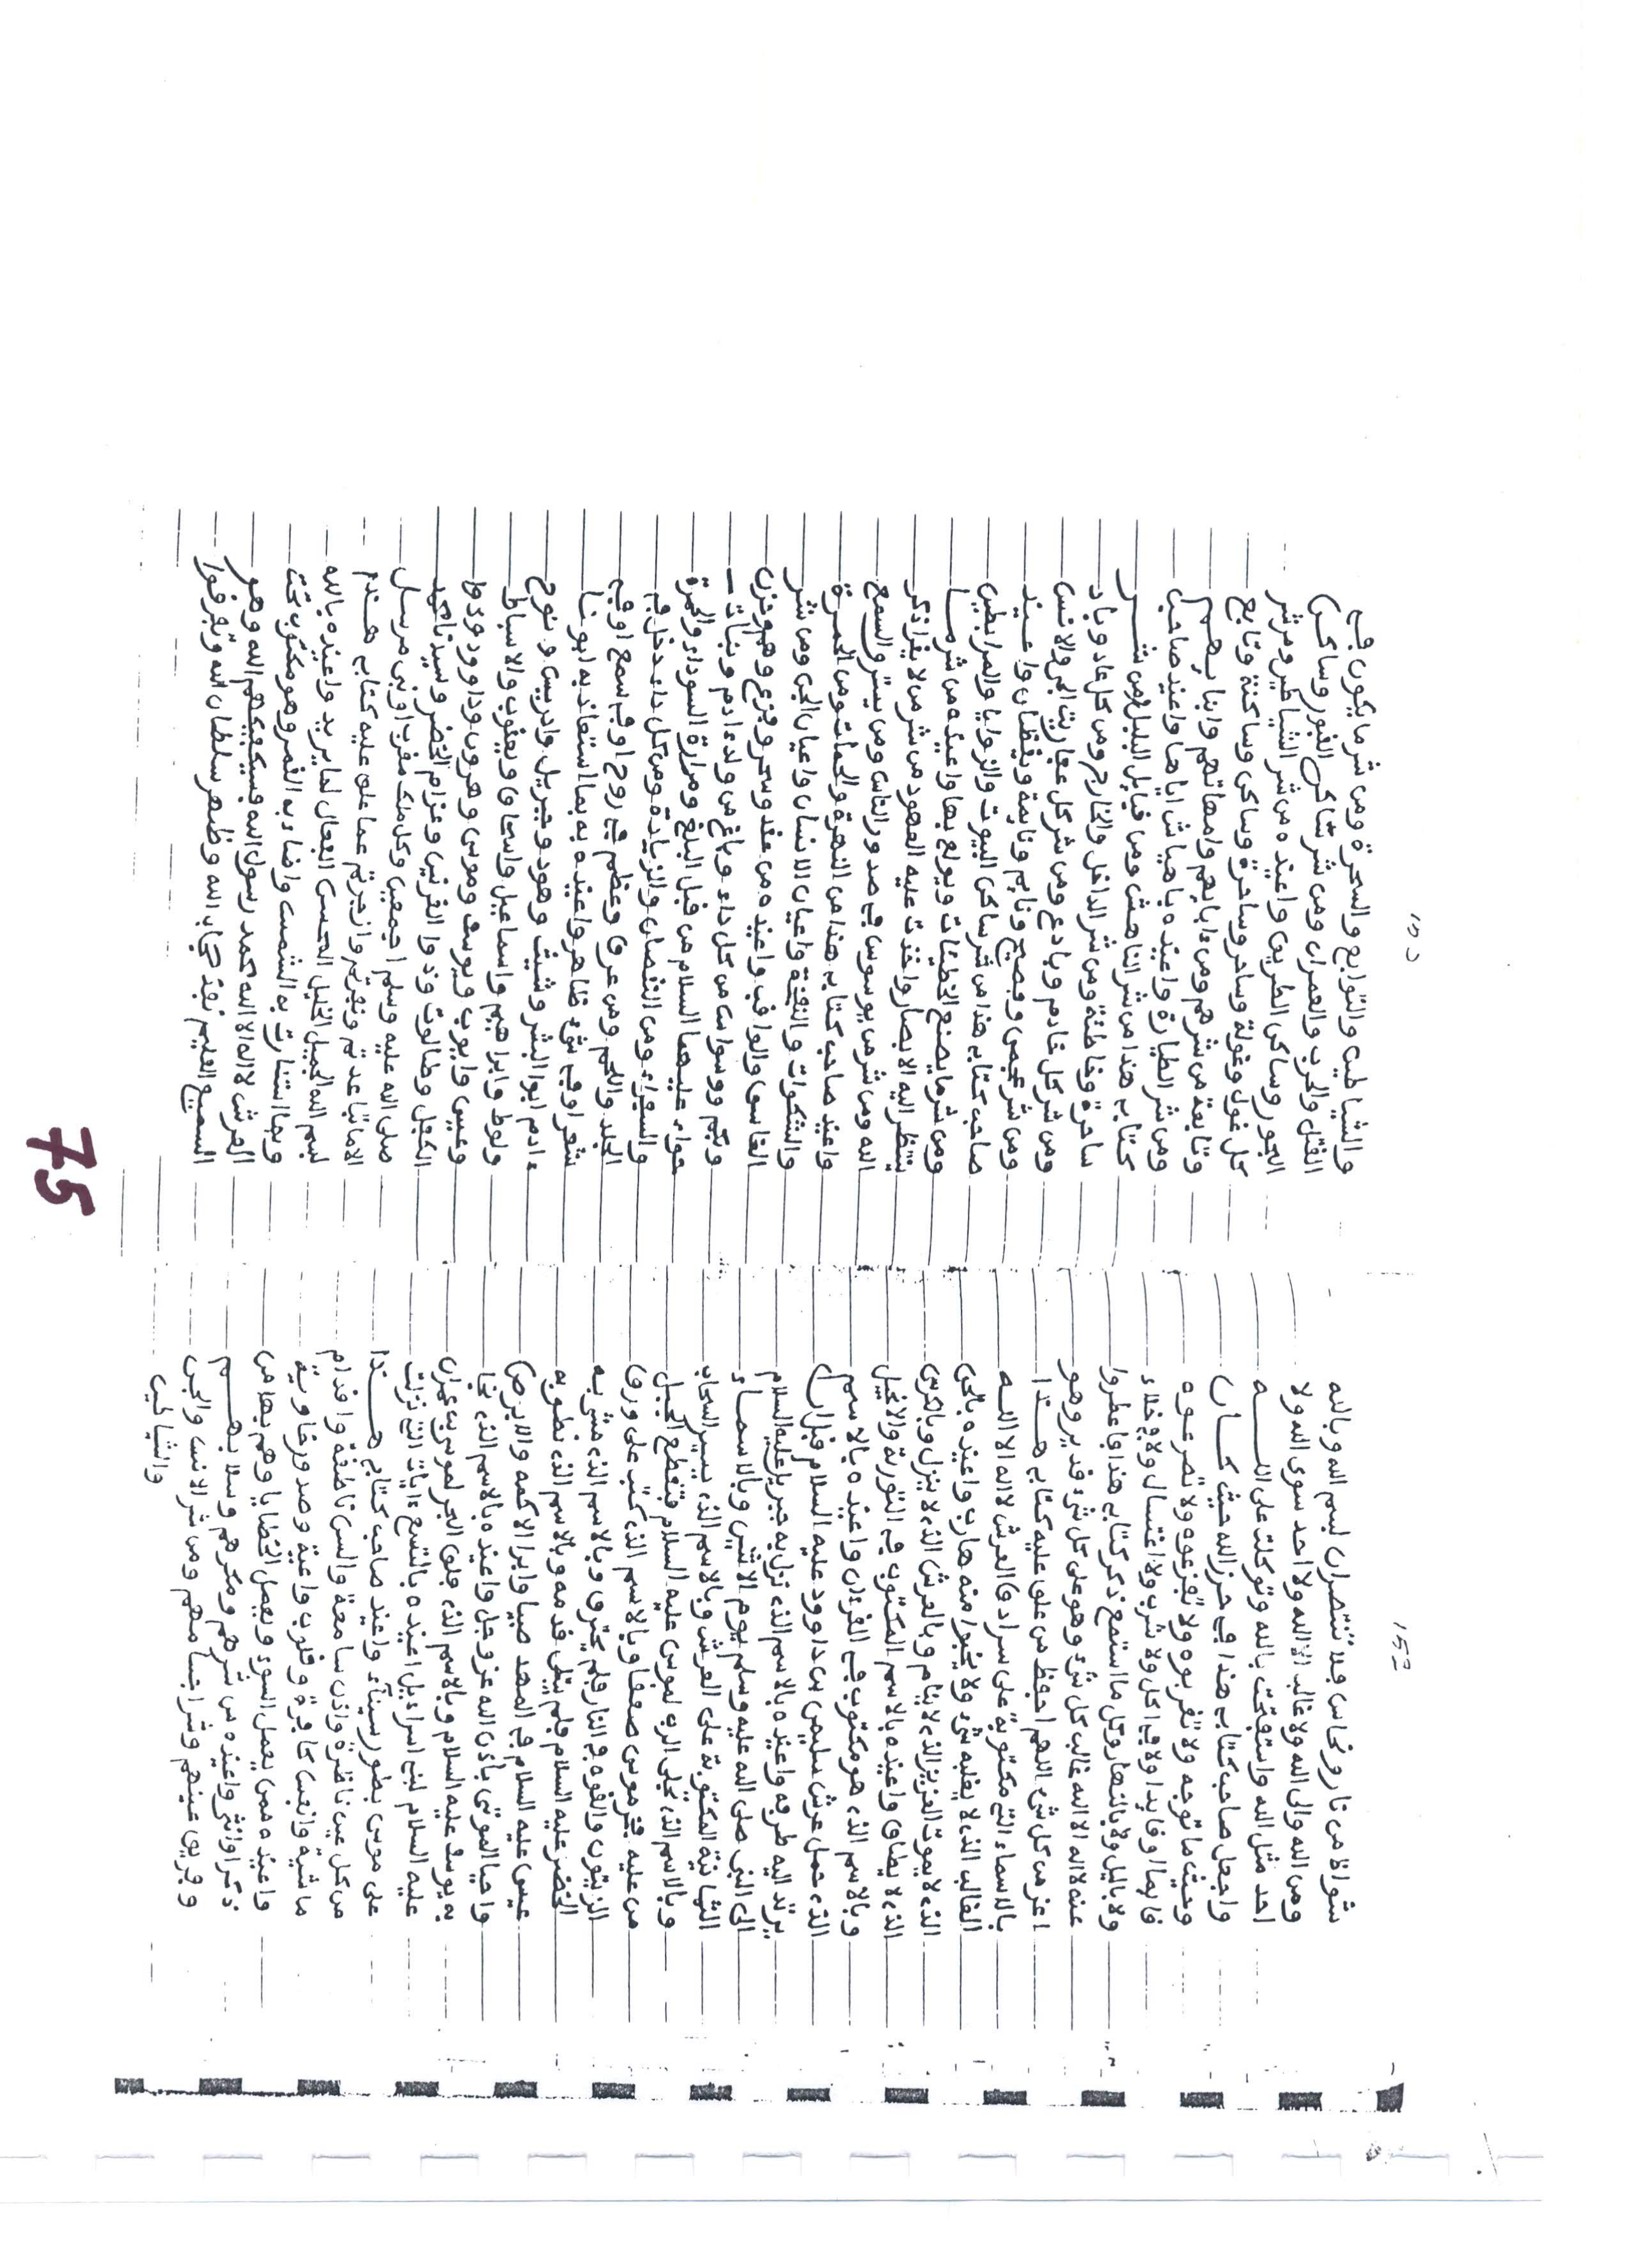 152
شواظ من نار ونحاس فلا تنتصران بسم الله وبالله
ومن الله والى الله ولا غالب الا الله ولا احد سوى الله ولا
احد مثل الله واستفتحت بالله وتوكلت على اللـــــه
واجعل صاحب كتابي هذا في حرز الله حيث كـــان
وحيث ما توجه ولا تقربوه ولا تفزعوه ولا تصرعوه
قايما او قايدا ولا في اكل ولا شرب ولا اغتسال ولا في خلاء
ولا بالليل ولا بالنهار وكل ما استمع ذكر كتابي هذا
عنه لا اله الا الله غالب كل شيء وهو على كل شيء قدير وهو
اعز من كل شيء اللهم احفظ من علق عليه كتابي هـــذا
بالاسماء التي مكتوبة على سرادق العرش لا اله الا اللـــه
الغالب الذي لا يغلبه شيء ولا ينجوا منه هارب واعيذه بالحي
الذي لا يموت العزيز الذي لا ينام وبالعرش الذي لا ينزل وبالكرسي
الذي لا يطاق واعيذه بالاسم المكتوب في التورية والانجيل
وبالاسم الذي هو مكتوب في القرءان واعيذه بالاسم
الذي حمل عرش سليمن بن داوود عليه السلام قبل ان
يرتد اليه طرفه واعيذه بالاسم الذي نزل به جبريل عليه السلام
الى النبي صلى الله عليه وسلم يوم الاثنين وبالاسمـــاء
الثمانية المكتوبة على العرش وبالاسم الذي يسير السحاب
وبالاسم الذي تجلى الرب لموسى عليه السلام فتقطع الجبل
من عليه فخر موسى صعقا وبالاسم الذي كتب على ورق
الزيتون والقوه في النار فلم يحترق وبالاسم الذي مشى به
الخضر عليه السلام فلم يبتل قدمه وبالاسم الذي نطق به
عيسى عليه السلام في المهد صبيا وابرا الاكمه والابرص
واحيا الموتى باذن الله عز وجل واعيذه بالاسم الذي نجا
به يوسف عليه السلام وبالاسم الذي فلق البحر لموسى بن عمران
عليه السلام لبني اسراءيل اعيذه بالتسع ءايات التي نزلت
على موسى بطور سيناء واعيذ صاحب كتابي هـــذا
من كل عين ناظرة واذن سامعة والسن ناطقة واقدام
ماشية وانفس كافرة وقلوب واعية وصدور خاوية
واعيذه ممن يعمل السوء ويعمل الخطايا وهم بها من
ذكر او انثى واعيذه من شرهم ومكرهم وسلابهـــم
وبريق عينهم وشر اجسامهم ومن شر الانس والجن
والشياطين
153
والشياطين والتوابع والسحرة ومن شر ما يكون في
القتل والحرب والعمران ومن شر ساكن القبور وساكن
البحور وساكن الطريق واعيذه من شر الشياطين ومن شر
كل غول وغولة وساحر وساحرة وساكن وساكنة وتابع
وتابعة من شرهم ومن ءابايهم وامهاتهم وابنايهـــم
ومن شر الطيارة واعيذه صاحب
كتابي هذا من شر الناهش ومن قبايل الليل ومن شـــر
ساحرة وخاطئة ومن شر الداخل والخارج ومن كل عاد وباد
ومن شر كل قادم وبادع ومن شر كل عفاريت الجن والانس
ومن شر عجمي وفصيح ونايم ونايمة ويقظان واعيـــذ
صاحب كتابي هذا من شر ساكن البيوت والزوايا والمرابطين
ومن شر ما يصنع الخطيئات ويولع بها واعيذه من شر مـــا
ينتظر اليه الابصار واخذت عليه العهود من شر من لا يقرا ذكر
الله ومن شر من يوسوس في صدور الناس ومن يسترق السمع
واعيذ صاحب كتابي هذا من النظرة والحمات ومن الحمرة
والشكوات والنفزة واعيان الانسان واعيان الجن ومن شر
الغاسق والواقب واعيذه من عقد وسحر وفزع وهم وحزن
وبكم ووسواس من كل داء وباغ من ولد ءادم وبنات
حواء عليهما السلام من قبل البلغ ومرارة السوداء والحمرة
والصفراء ومن النقصان والزيادة ومن كل داء دخل في
الجلد واللحم ومن عرق وعظم في روح او في سمع او في
شعر او في شيء ظاهر واعيذه به بما استعاذ به ابونـــا
ءادم ابوا البشر وشيت وهود وجبريل وادريس ونوح
ولوط وابراهيم واسماعيل واسحاق ويعقوب والاسباط
وعيسى وايوب ويوسف وموسى وهرون وداوود وذا
الكفل وطالوت وذو القرنين وعزام الخضر وسيدنا محمد
صلى الله عليه وسلم اجمعين وكل ملك مقرب او نبي مرسل
الا ما تباعدتم ونفرتم وانزجرتم عما علق عليه كتابي هـــذا
بسم الله الجميل الجليل المحسن الفعال لما يريد واعيذه بالله
وبما استنارت به الشمس واضاء به القمر وهو مكتوب تحت
العرش لا اله الا الله محمد رسول الله فسيكفيكهم الله وهو
السميع العليم نفذ حجاب الله وظهر سلطان الله وتفرقوا
75